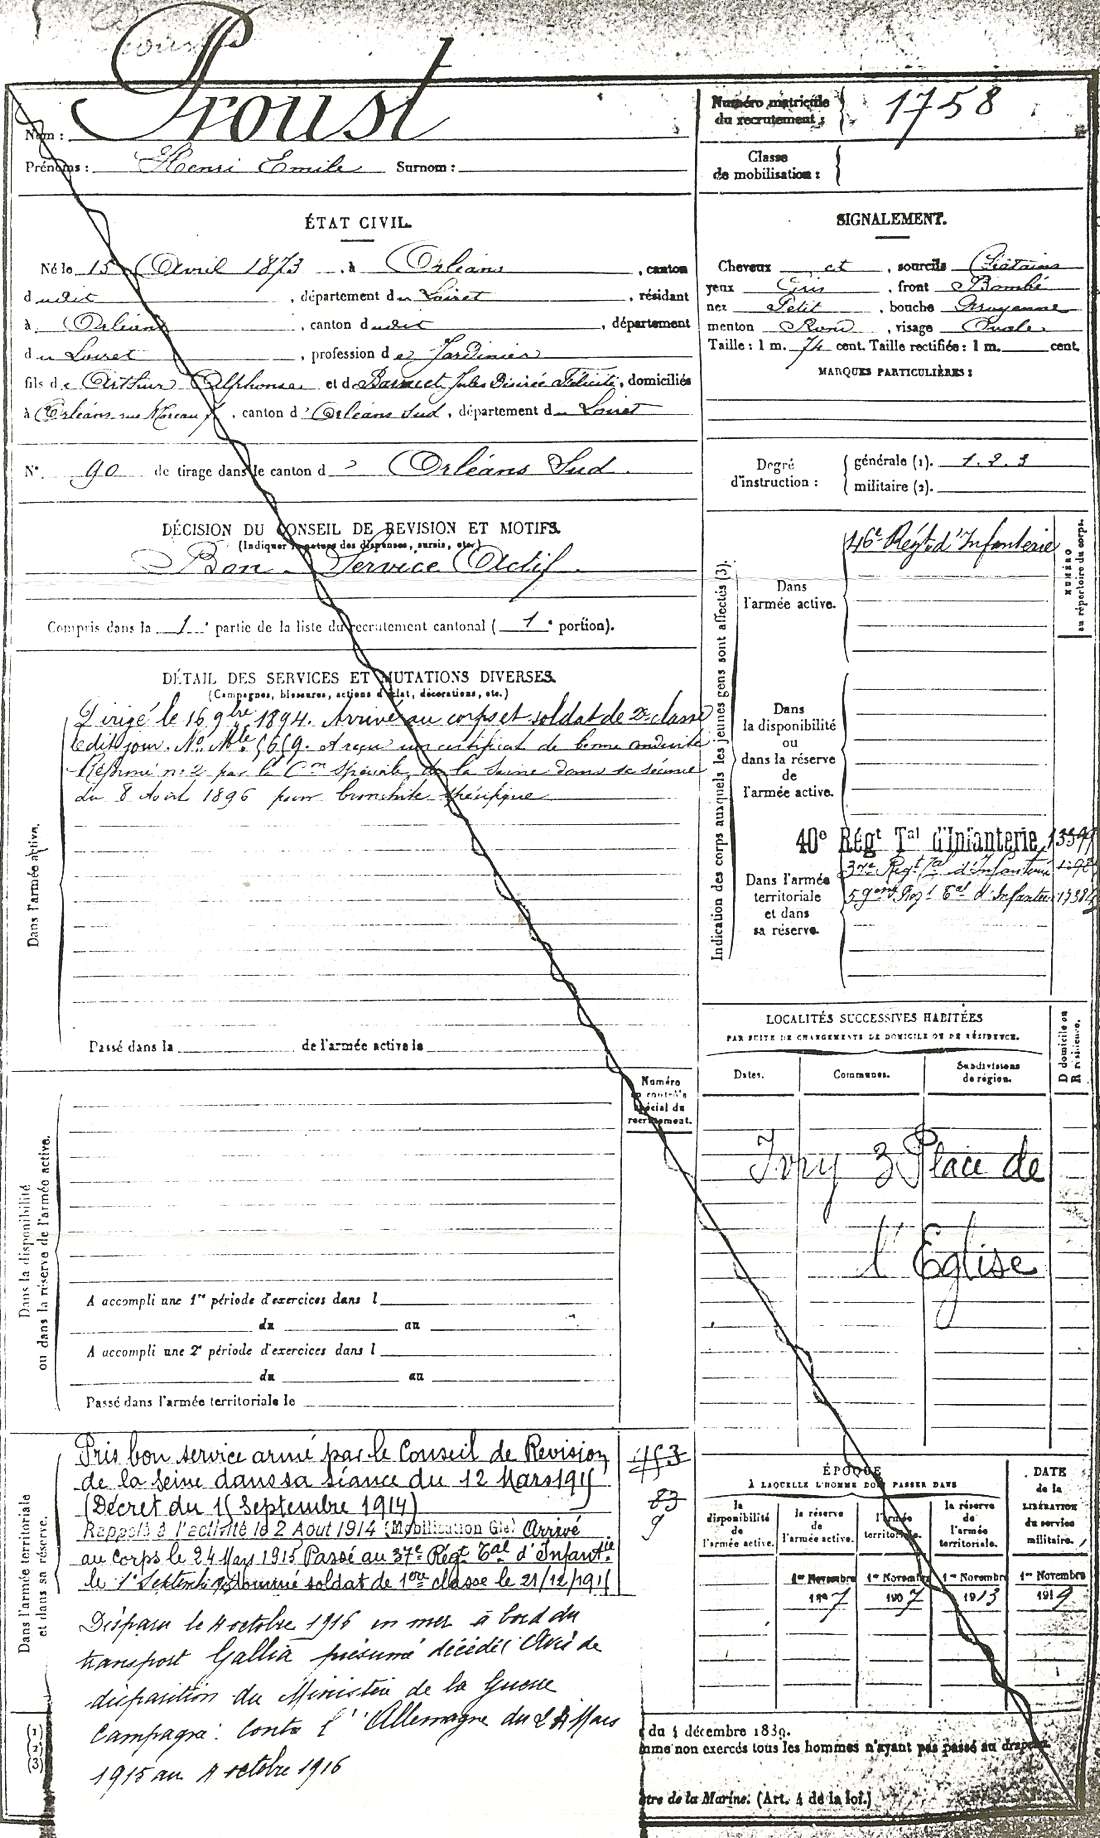 Proust
Nom :
Prénoms : Henri Emile Surnom :
Numéro matricule
du recrutement : 1758
Classe
de mobilisation :
ÉTAT CIVIL.
Né le 15 Avril 1873, à Orléans, canton
dudit, département du Loiret, résidant
à Orléans, canton dudit, département
du Loiret, profession de Jardinier
fils de Arthur Alphonse et d Jules Désirée Félicité, domiciliés
à Orléans rue Moreau, canton d'Orléans Sud, département du Loiret
N° 90 de tirage dans le canton d' Orléans Sud.
SIGNALEMENT.
Cheveux et, sourcils Châtains
yeux Gris, front Bombé
nez Petit, bouche Moyenne
menton Rond, visage Ovale
Taille : 1 m. 74 cent. Taille rectifiée : 1 m. cent.
MARQUES PARTICULIÈRES :
Degré
d'instruction :
générale (1). 1.2.3
militaire (2).
DÉCISION DU CONSEIL DE REVISION ET MOTIFS.
(Indiquer la nature des dispenses, sursis, etc.)
Bon. Service Actif.
Compris dans la 1re partie de la liste du recrutement cantonal (1e portion).
DÉTAIL DES SERVICES ET MUTATIONS DIVERSES.
(Campagnes, blessures, actions d'éclat, décorations, etc.)
Dirigé le 16 9bre 1894. Arrivé au corps et soldat de 2e classe
ledit jour. No Mle 5659. A reçu un certificat de bonne conduite
Réformé n° 2 par la Con Spéciale de la Seine dans sa séance
du 8 Avril 1896 pour bronchite spécifique
Dans l'armée active.
Passé dans la de l'armée active le
Indication des corps auxquels les jeunes gens sont affectés (3).
NUMÉRO
au répertoire du corps.
Dans
l'armée active.
46e Régt d'Infanterie
Dans
la disponibilité
ou
dans la réserve
de
l'armée active.
Dans l'armée
territoriale
et dans
sa réserve.
40e Régt Tal d'Infanterie
37e Régt Tal d'Infanterie
59eme Regt Tal d'Infanterie
LOCALITÉS SUCCESSIVES HABITÉES
PAR SUITE DE CHANGEMENTS DE DOMICILE OU DE RÉSIDENCE.
Dates.
Communes.
Subdivisions
de région.
D domicile ou
R résidence.
Ivry 3 Place de
l'Eglise
Numéro
au contrôle
spécial du
recrutement.
Dans la disponibilité
ou dans la réserve de l'armée active.
A accompli une 1re période d'exercices dans l
du au
A accompli une 2e période d'exercices dans l
du au
Passé dans l'armée territoriale le
Dans l'armée territoriale
et dans sa réserve.
Pris bon service armé par le Conseil de Revision
de la Seine dans sa séance du 12 Mars 1915
(Décret du 15 Septembre 1914)
Rappelé à l'activité le 2 Aout 1914 (Mobilisation Gle) Arrivé
au corps le 24 Mars 1915 Passé au 37e Régt Tal d'Infantie
le 1er Septembre 1915 nommé soldat de 1ere classe le 21/12/1915
Disparu le 4 octobre 1916 en mer à bord du
transport Gallia présumé décédé (Avis de
disparition du Ministère de la Guerre
Campagne : Contre l'Allemagne du 24 Mars
1915 au 4 octobre 1916
83
9
ÉPOQUE
À LAQUELLE L'HOMME DOIT PASSER DANS
DATE
de la
LIBÉRATION
du service
militaire.
la
disponibilité
de
l'armée active.
la réserve
de
l'armée active.
l'armée
territoriale.
la réserve
de
l'armée
territoriale.
1er Novembre
1897
1er Novembre
1907
1er Novembre
1913
1er Novembre
1919
(1)
(2)
(3)
du 5 décembre 1839.
mme non exercés tous les hommes n'ayant pas passé au drapeau
stre de la Marine. (Art. 4 de la loi.)